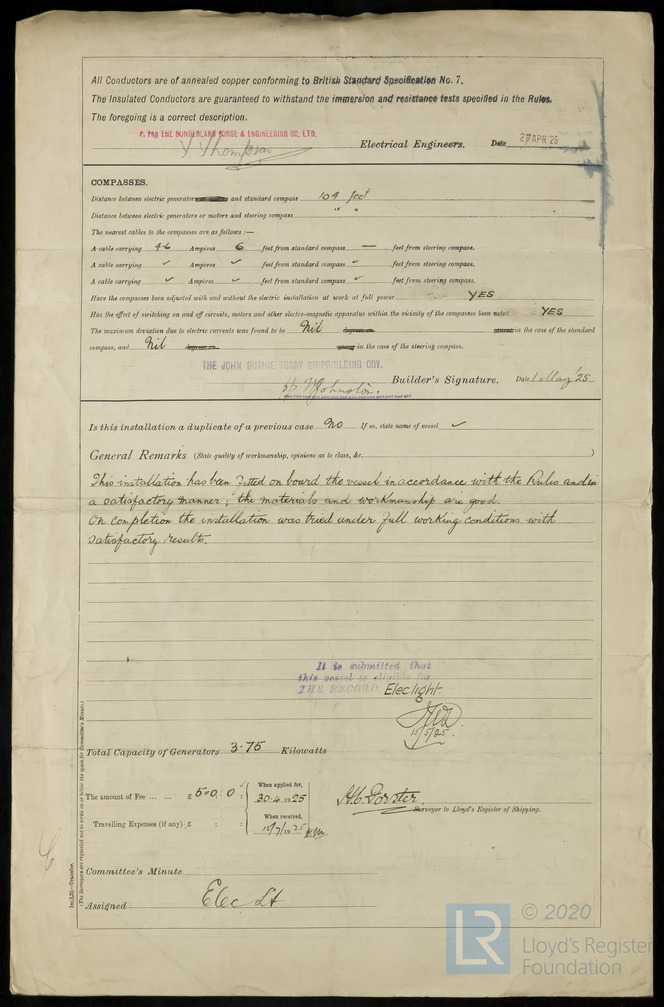 All Conductors are of annealed copper conforming to British Standard Specification No. 7.
The Insulated Conductors are guaranteed to withstand the immersion and resistance tests specified in the Rules.
The foregoing is a correct description.
P. PRO THE SUNDERLAND FORGE & ENGINEERING CO. LTD.
Thompson Electrical Engineers. Date APR 25
COMPASSES.
Distance between electric generators and standard compass 104 feet
Distance between electric generators or motors and steering compass " "
The nearest cables to the compasses are as follows:—
A cable carrying 4.6 Ampères 6 feet from standard compass — feet from steering compass.
A cable carrying ✓ Ampères ✓ feet from standard compass ✓ feet from steering compass.
A cable carrying ✓ Ampères ✓ feet from standard compass ✓ feet from steering compass.
Have the compasses been adjusted with and without the electric installation at work at full power YES
Has the effect of switching on and off circuits, motors and other electro-magnetic apparatus within the vicinity of the compasses been noted YES
The maximum deviation due to electric currents was found to be Nil degrees on course in the case of the standard
compass, and Nil degrees on course in the case of the steering compass.
THE JOHN DUTHIE TORRY SHIPBUILDING COY.
pp Johnston. Builder's Signature. Date 1 May '25
Is this installation a duplicate of a previous case No If so, state name of vessel ✓
General Remarks (State quality of workmanship, opinions as to class, &c. )
This installation has been fitted on board the vessel in accordance with the Rules and in
a satisfactory manner; the materials and workmanship are good.
On completion the installation was tried under full working conditions with
satisfactory results.
It is submitted that
this vessel is eligible for
THE RECORD. Elec light.
15/5/25.
Total Capacity of Generators 3.75 Kilowatts
The amount of Fee ... ... £ 5 : 0 : 0 When applied for, 30.4.1925
H.C. Forster
Surveyor to Lloyd's Register of Shipping.
Travelling Expenses (if any) £ : : When received, 15/7/1925
Committee's Minute
Assigned Elec Lt
(The Surveyors are requested not to write on or below the space for Committee's Minute.)
LR © 2020
Lloyd's Register
Foundation